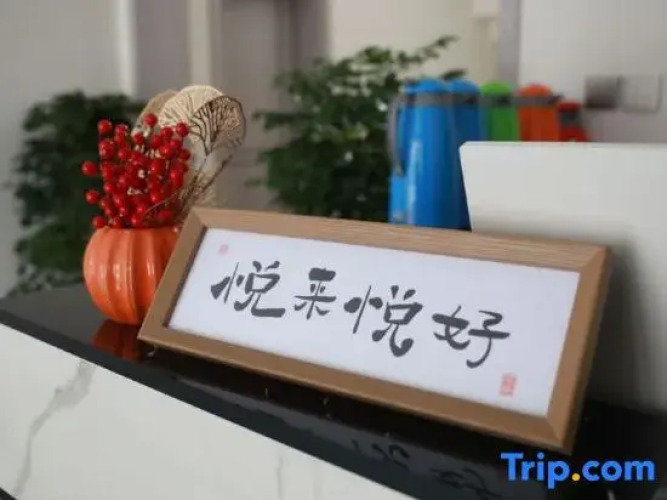 悦来悦好
Trip.com